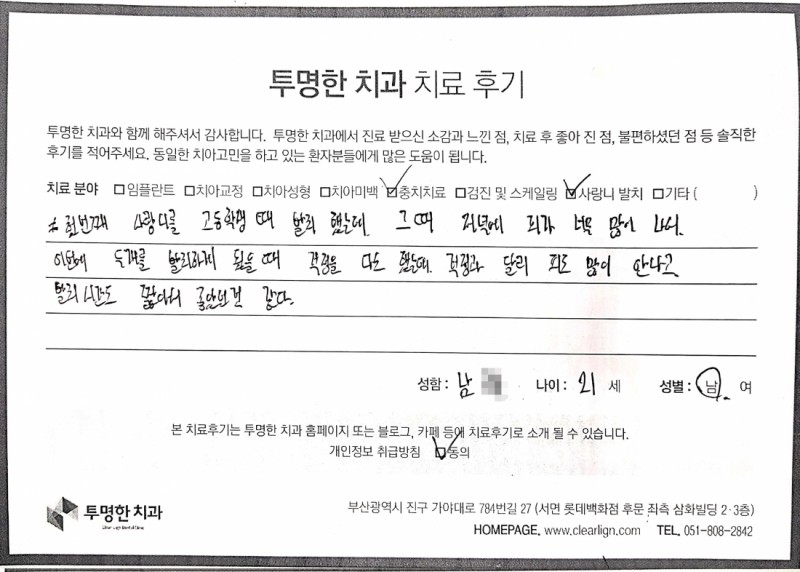 투명한 치과 치료 후기
투명한 치과와 함께 해주셔서 감사합니다. 투명한 치과에서 진료 받으신 소감과 느낀 점, 치료 후 좋아 진 점, 불편하셨던 점 등 솔직한
후기를 적어주세요. 동일한 치아고민을 하고 있는 환자분들에게 많은 도움이 됩니다.
치료 분야 □임플란트 □치아교정 □치아성형 □치아미백 ☑충치치료 □검진 및 스케일링 ☑사랑니 발치 □기타 ( )
첫번째 사랑니를 고등학생 때 발치 했는데. 그 때 저녁에 피가 너무 많이 나서.
이번에 두개를 발치하게 됬을 때 걱정을 다도 했는데. 걱정과 달리 피도 많이 안나고
발치 시간도 짧아서 좋았던것 같다.
성함 : 남 나이 : 21 세 성별 : 남 여
본 치료후기는 투명한 치과 홈페이지 또는 블로그, 카페 등에 치료후기로 소개 될 수 있습니다.
개인정보 취급방침 ☑동의
투명한 치과
부산광역시 진구 가야대로 784번길 27 (서면 롯데백화점 후문 좌측 삼화빌딩 2·3층)
HOMEPAGE. www.clearlign.com TEL. 051-808-2842